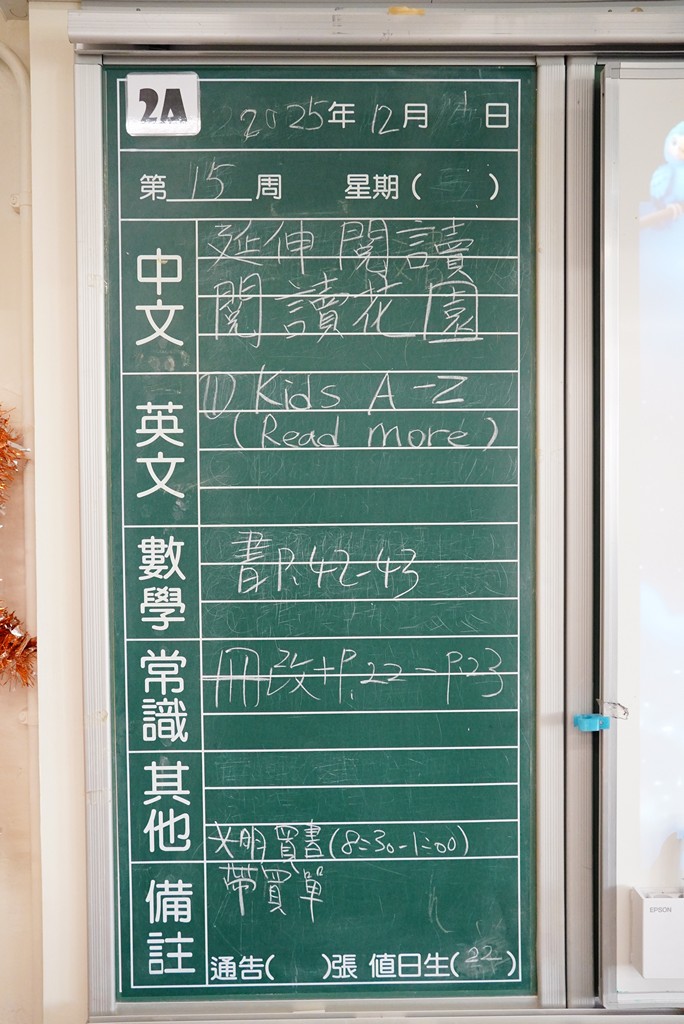 2A
2025年 12月 日
第 15 周 星期( )
中文
延伸閱讀
閱讀花園
英文
(1) Kids A-Z
(Read more)
數學
書P.42-43
常識
冊改+P.22-P.23
其他
買書(8:30-1:00)
備註
帶買單
通告( )張 值日生(22)
EPSON